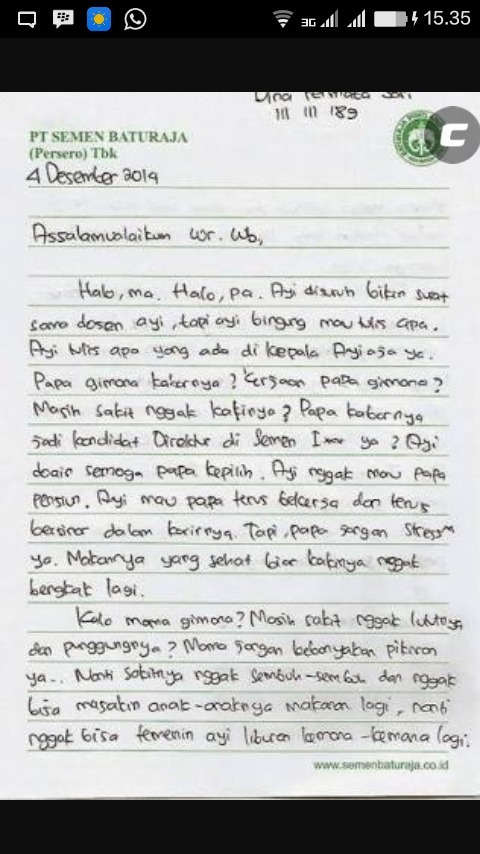 3G 15.35
Dina Permata Sari
111 111 189
PT SEMEN BATURAJA
(Persero) Tbk
4 Desember 2014
Assalamualaikum Wr. Wb,
Halo, ma. Halo, pa. Ayi disuruh bikin surat
sama dosen ayi, tapi ayi bingung mau tulis apa.
Ayi tulis apa yang ada di kepala Ayi aja ya.
Papa gimana kabarnya? Kerjaan papa gimana?
Masih sakit nggak kakinya? Papa kabarnya
jadi kandidat Direktur di Semen I*** ya? Ayi
doain semoga papa kepilih. Ayi nggak mau papa
pensiun. Ayi mau papa terus bekerja dan terus
bersinar dalam karirnya. Tapi, papa jangan stress"
ya. Makannya yang sehat biar kakinya nggak
bengkak lagi.
Kalo mama gimana? Masih sakit nggak lututnya
dan punggungnya? Mama jangan kebanyakan pikiran
ya.. Nanti sakitnya nggak sembuh-sembuh dan nggak
bisa masakin anak-anaknya makanan lagi, nanti
nggak bisa temenin ayi liburan kemana-kemana lagi.
www.semenbaturaja.co.id